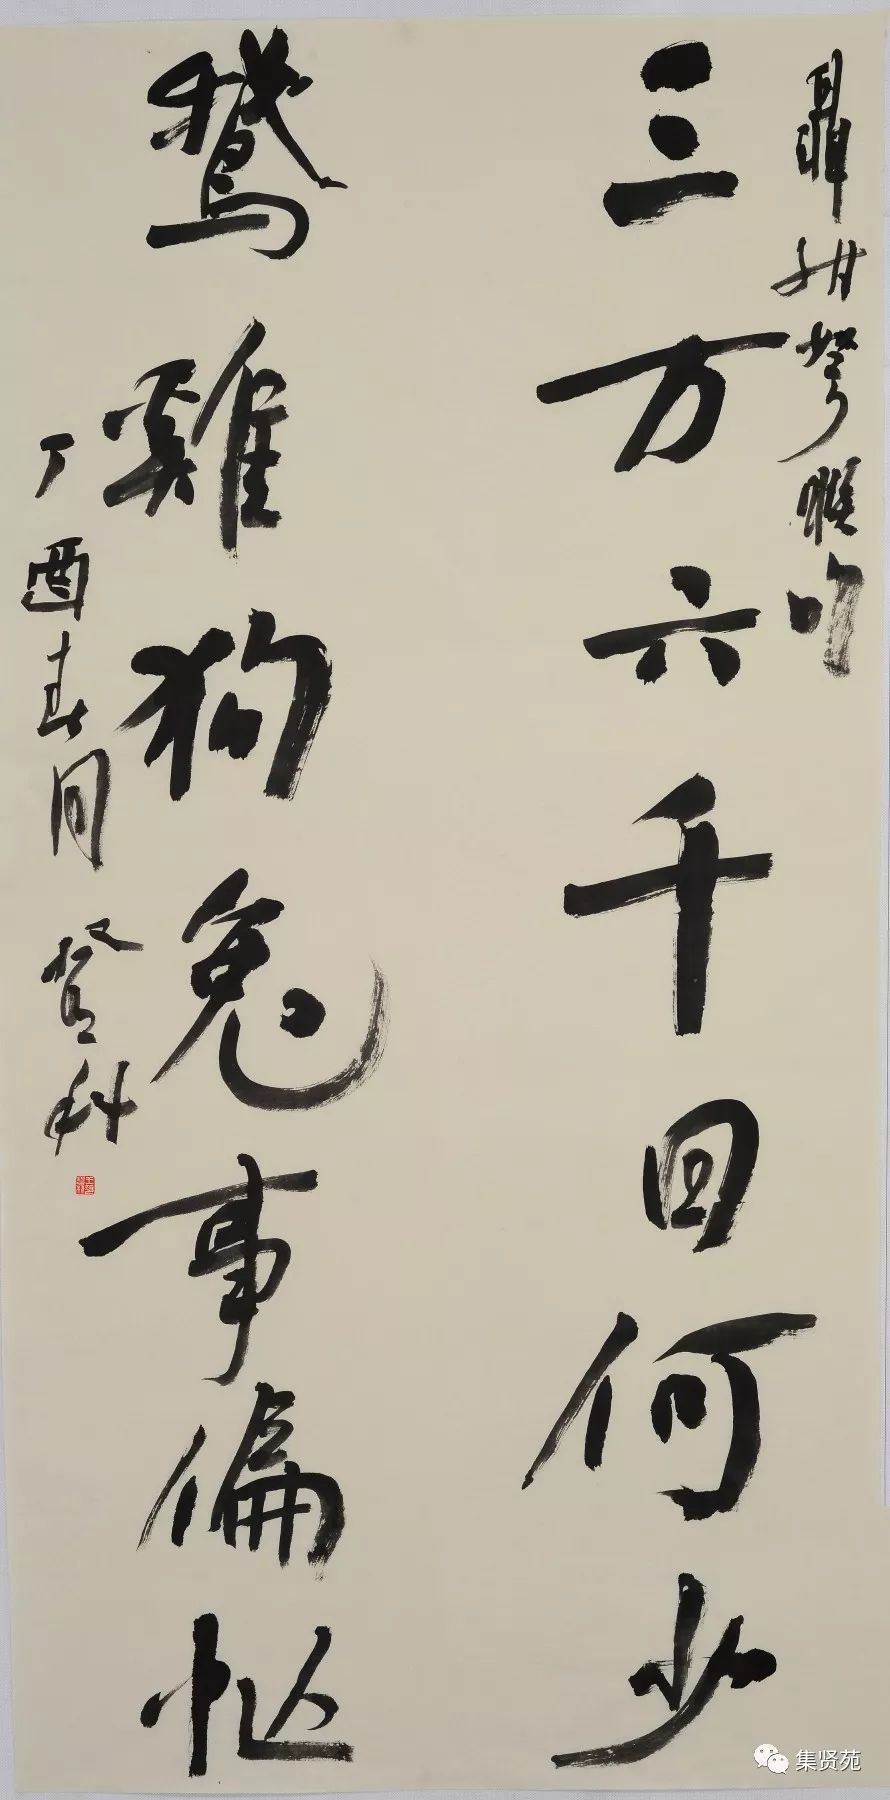 聶紺弩
三万六千回何少
鵞雞狗兔事偏忙
丁酉春月 登科
集贤苑